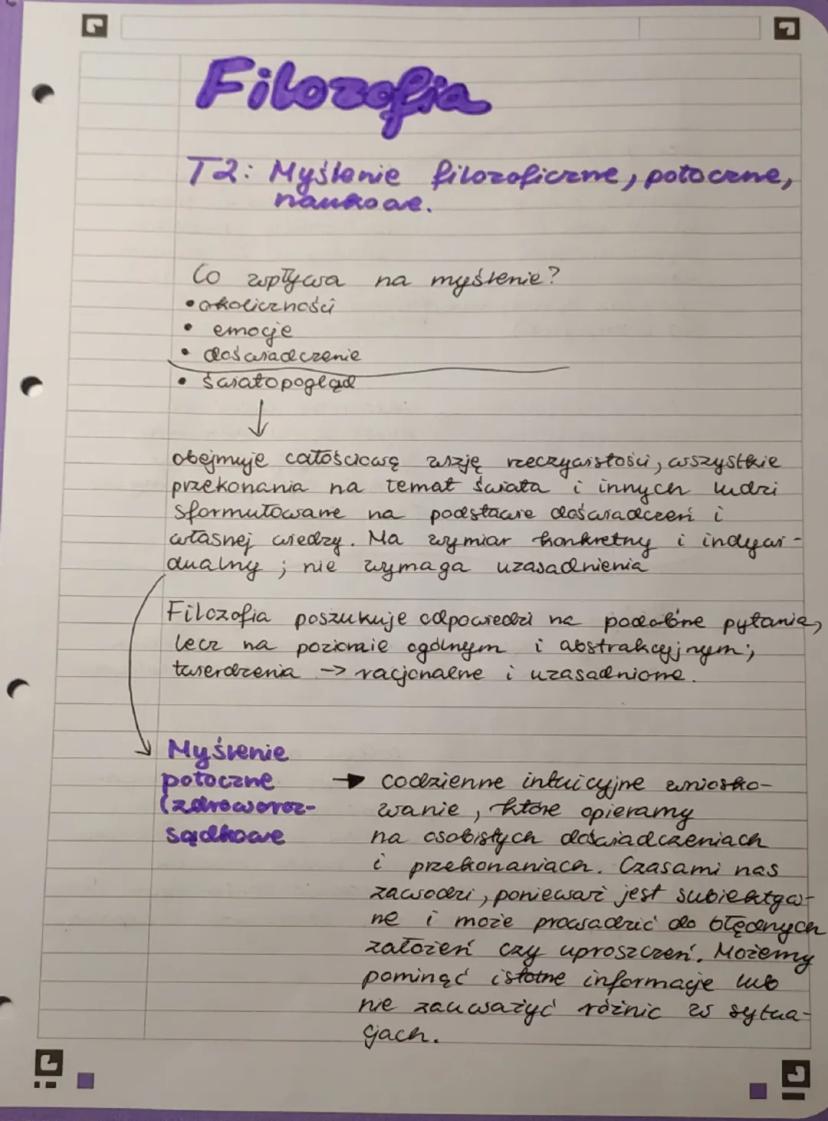 Filozofia
T2: Myślenie filozoficzne, potoczne,
naukowe.
Co wpływa na myślenie?
• okoliczności
• emocje
• doświadczenie
• światopogląd
↓
obejmuje całościową wizję rzeczywistości, wszystkie
przekonania na temat świata i innych ludzi
sformułowane na podstawie doświadczeń i
własnej wiedzy. Ma wymiar konkretny i indywi-
dualny ; nie wymaga uzasadnienia
Filozofia poszukuje odpowiedzi na podobne pytania,
lecz na poziomie ogólnym i abstrakcyjnym;
twierdzenia → racjonalne i uzasadnione.
Myślenie
potoczne → codzienne intuicyjne wniosko-
(zdroworoz- wanie, które opieramy
sądkowe na osobistych doświadczeniach
i przekonaniach. Czasami nas
zawodzi, ponieważ jest subiektyw-
ne i może prowadzić do błędnych
założeń czy uproszczeń. Możemy
pominąć istotne informacje lub
nie zauważyć różnic w sytua-
cjach.